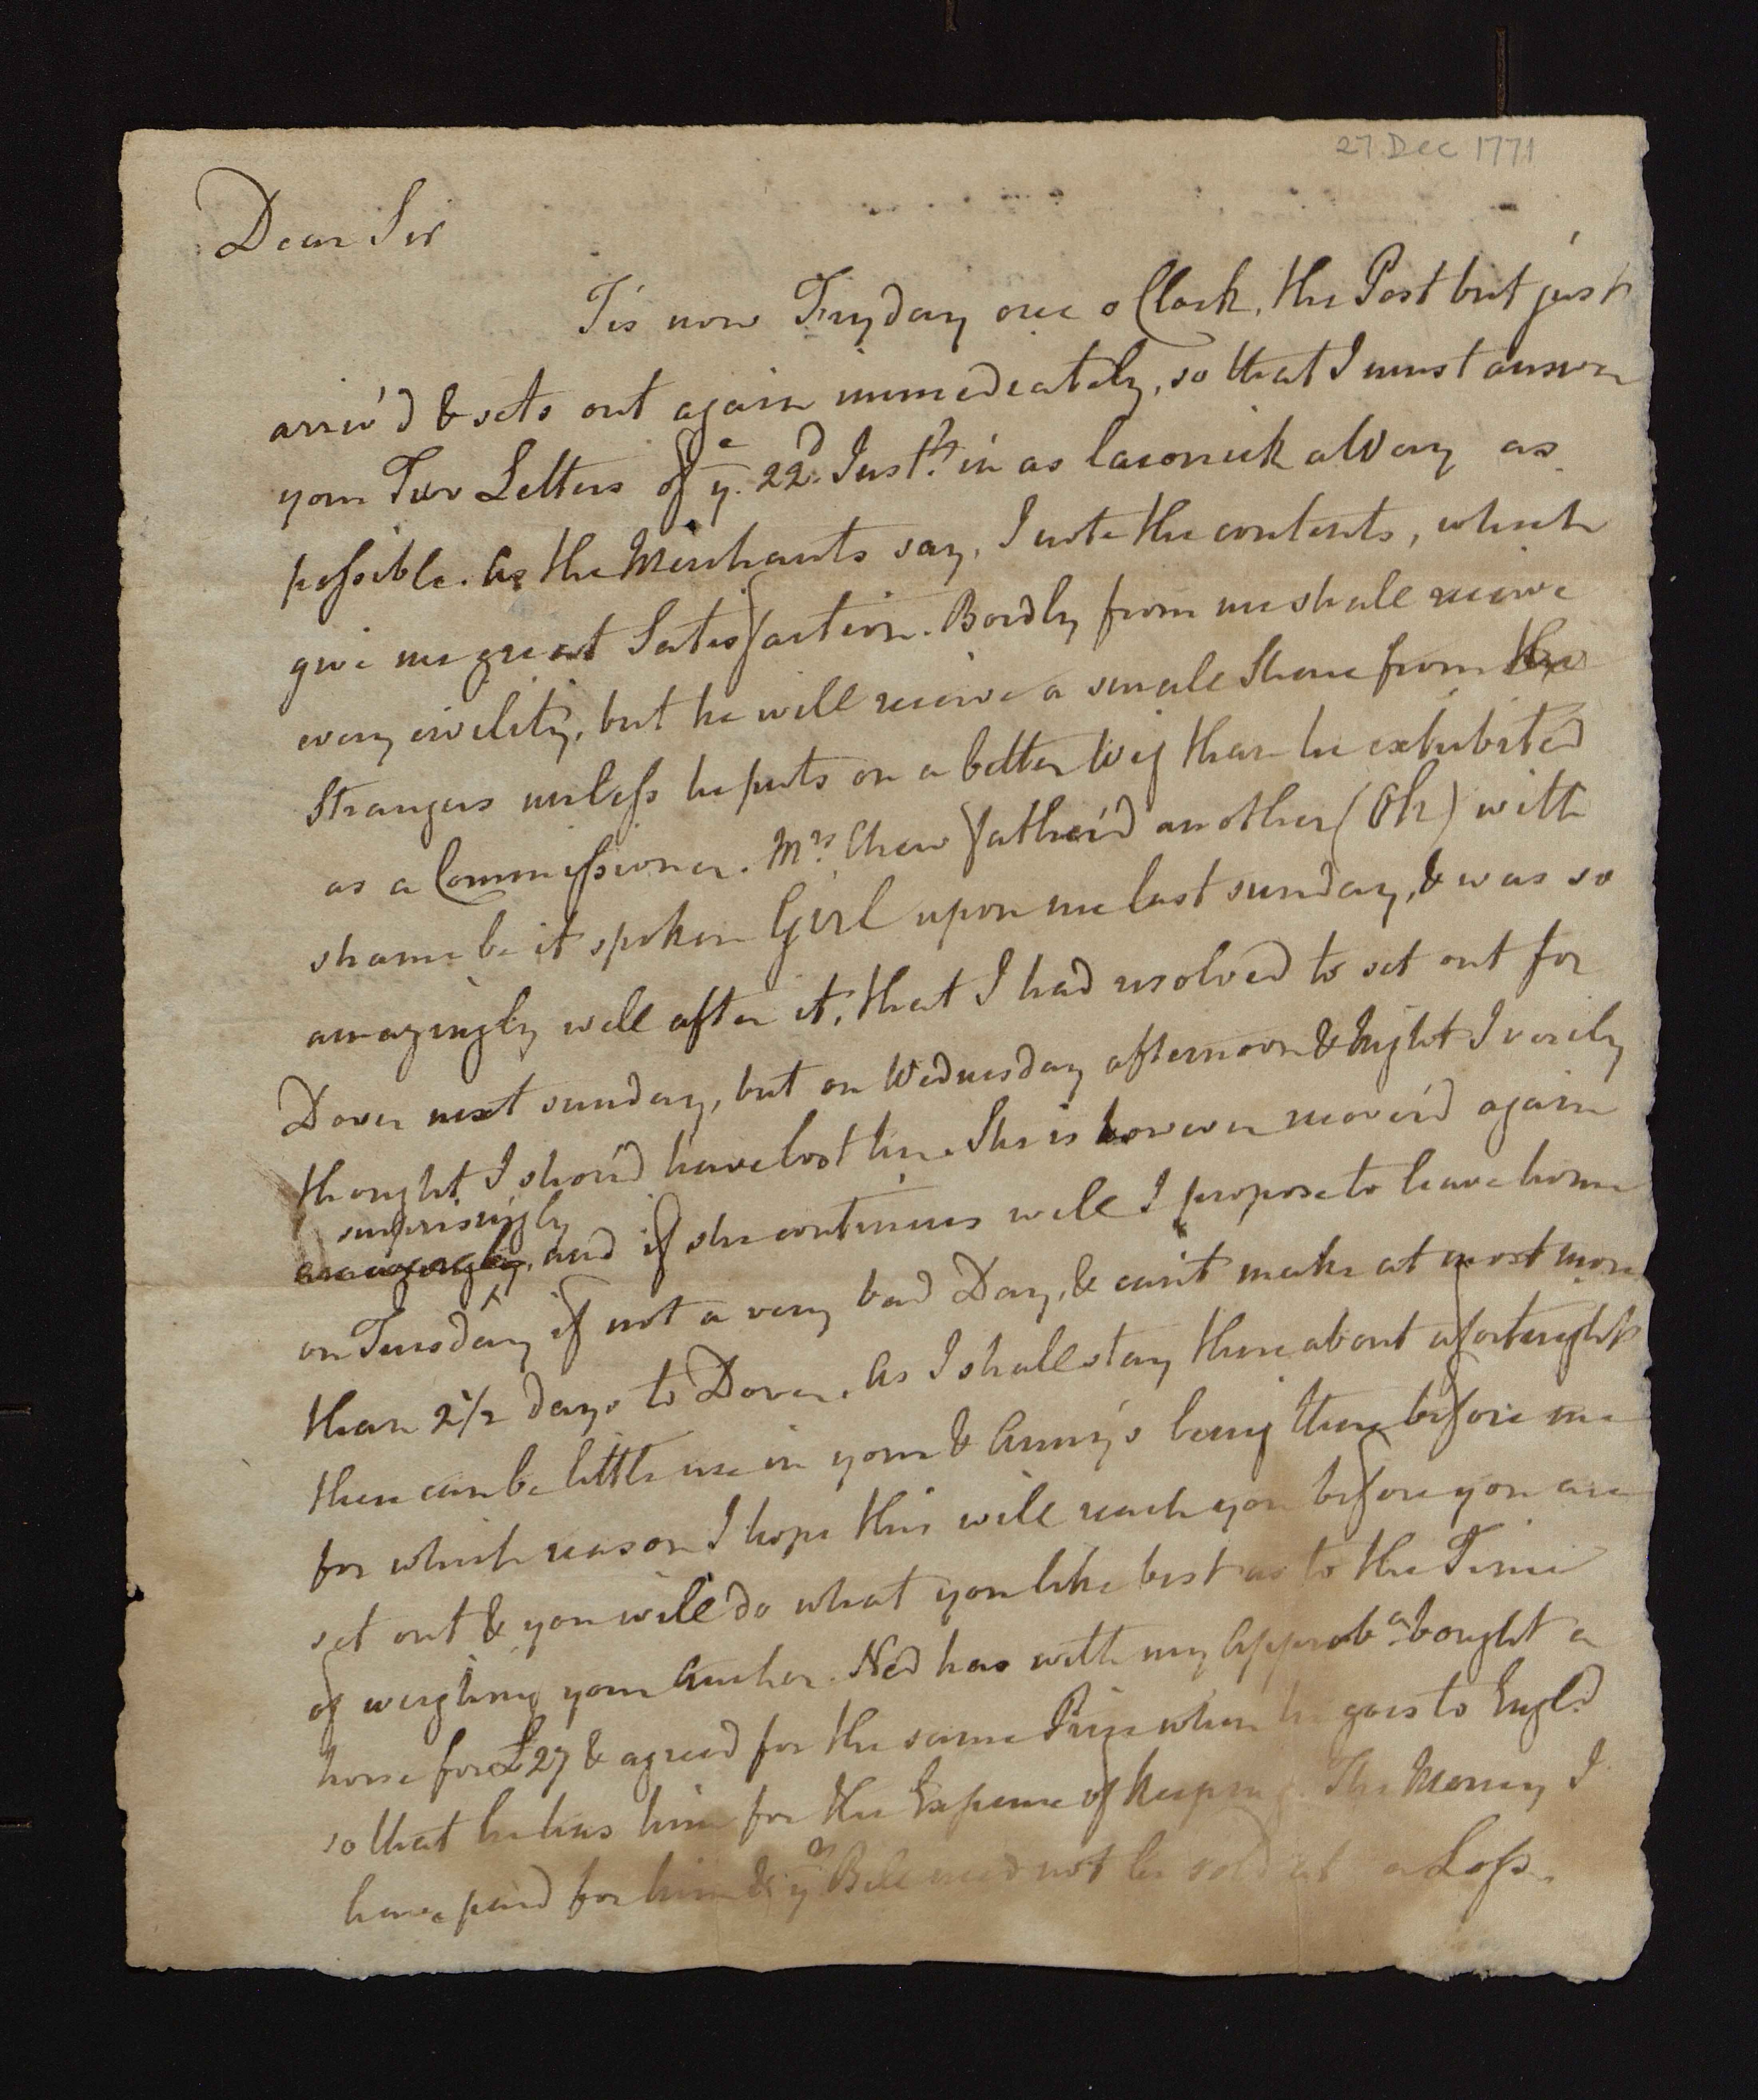 27 Dec 1771
Dear Sir
Tis now Fryday one o Clock, the Post but just
arriv'd & sets out again immediately, so that I must answer
your Two Letters of ye. 22d. Inst. in as laconick a Way as
possible. As the Merchants say, I note the contents, which
give me great Satisfaction. Bordly from me shall receive
every civility, but he will receive a small Share from the
Strangers unless he puts on a better Wig than he exhibited
as a Commissioner. Mrs. Chew father'd another (Oh) with
shame be it spoken Girl upon me last sunday, & was so
amazingly well after it, that I had resolved to set out for
Dover next sunday, but on Wednesday afternoon & Night I verily
thought I shou'd have lost her. She is however recover'd again
surprisingly
amazingly, and if she continues well I propose to leave home
on Tuesday if not a very bad Day, & can't make at most more
than 2 1/2 days to Dover. As I shall stay there about a fortnight
there can be little use in your & Anny's being there before me
for which reason I hope this will reach you before you are
set out & you will do what you like best as to the Time
of weighing your Anchor. Ned has with my Approba. bought a
horse for £27 & agreed for the same Price when he goes to Engld.
so that he has him for the Expence of keeping. The Money I
have paid for him & yr. Bill need not be sold at a Loss.